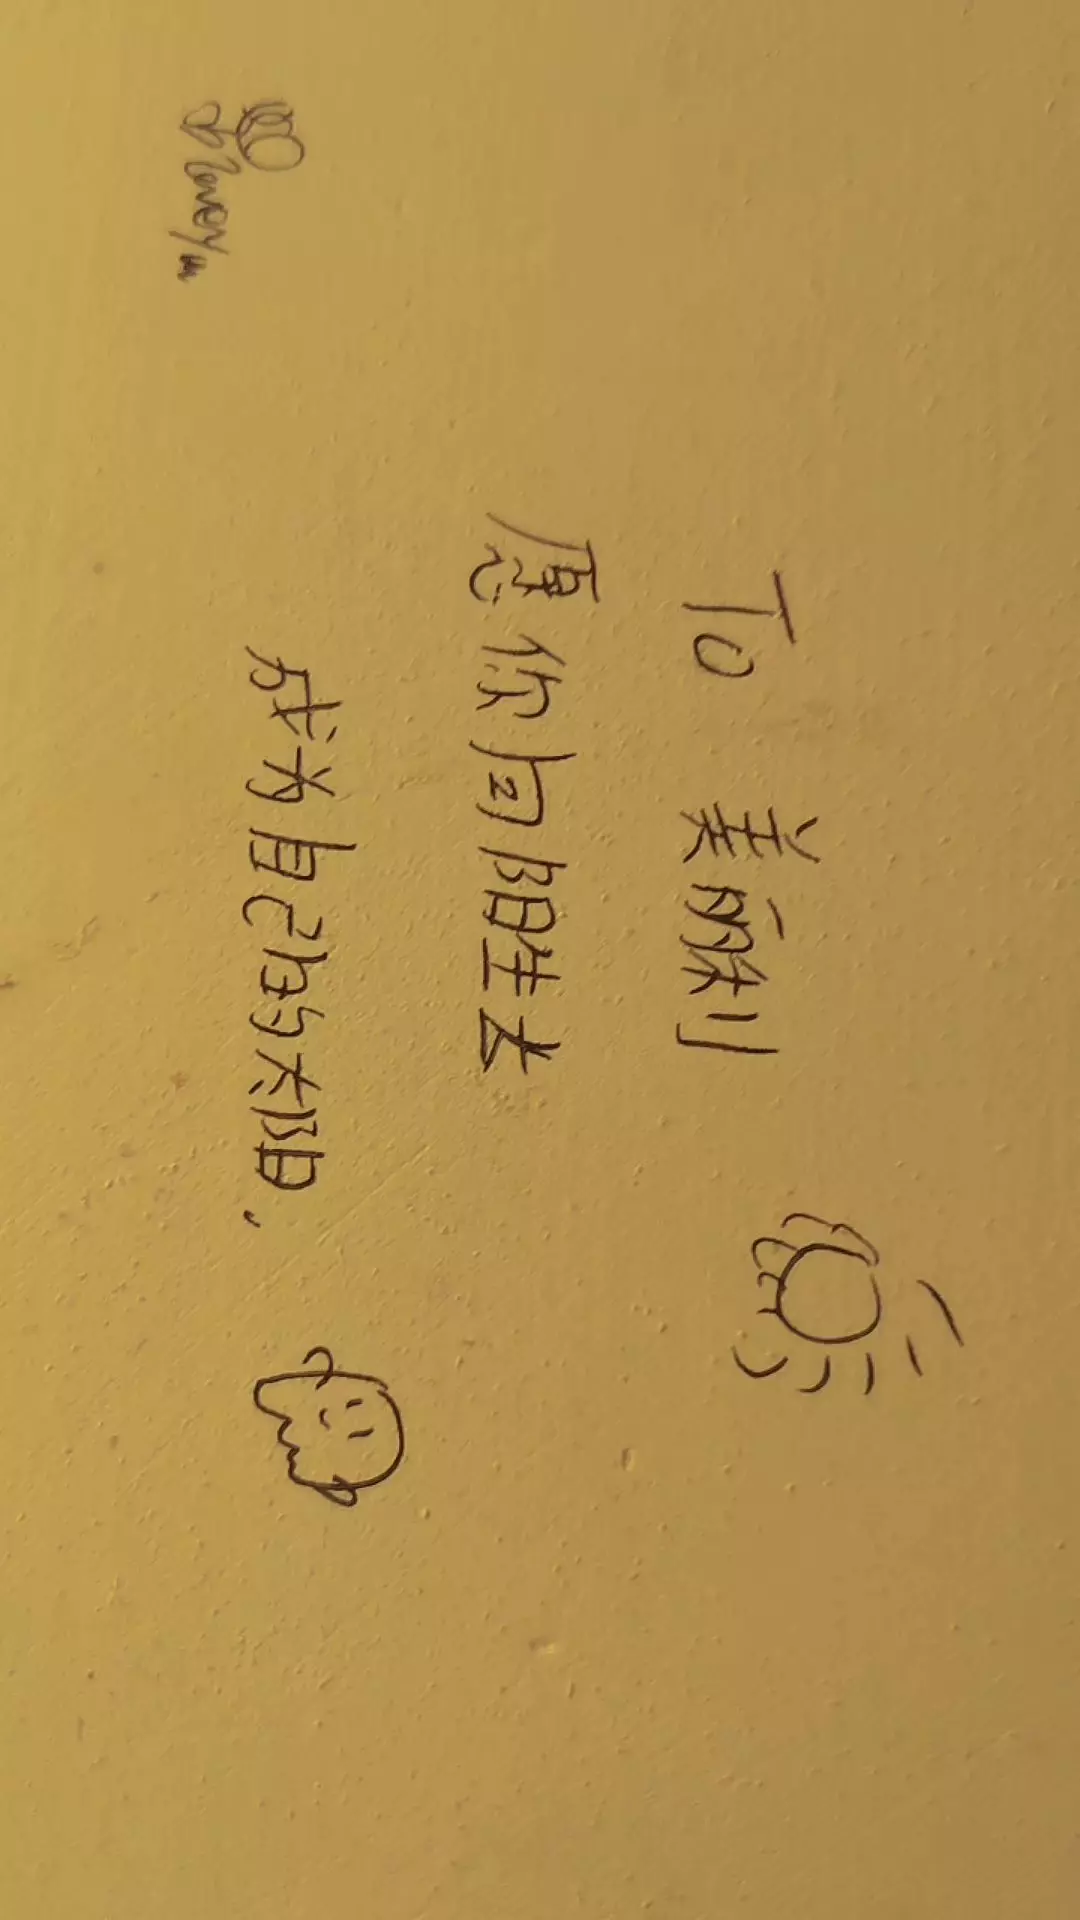 To 美丽利
愿你向阳生长
成为自己的太阳.